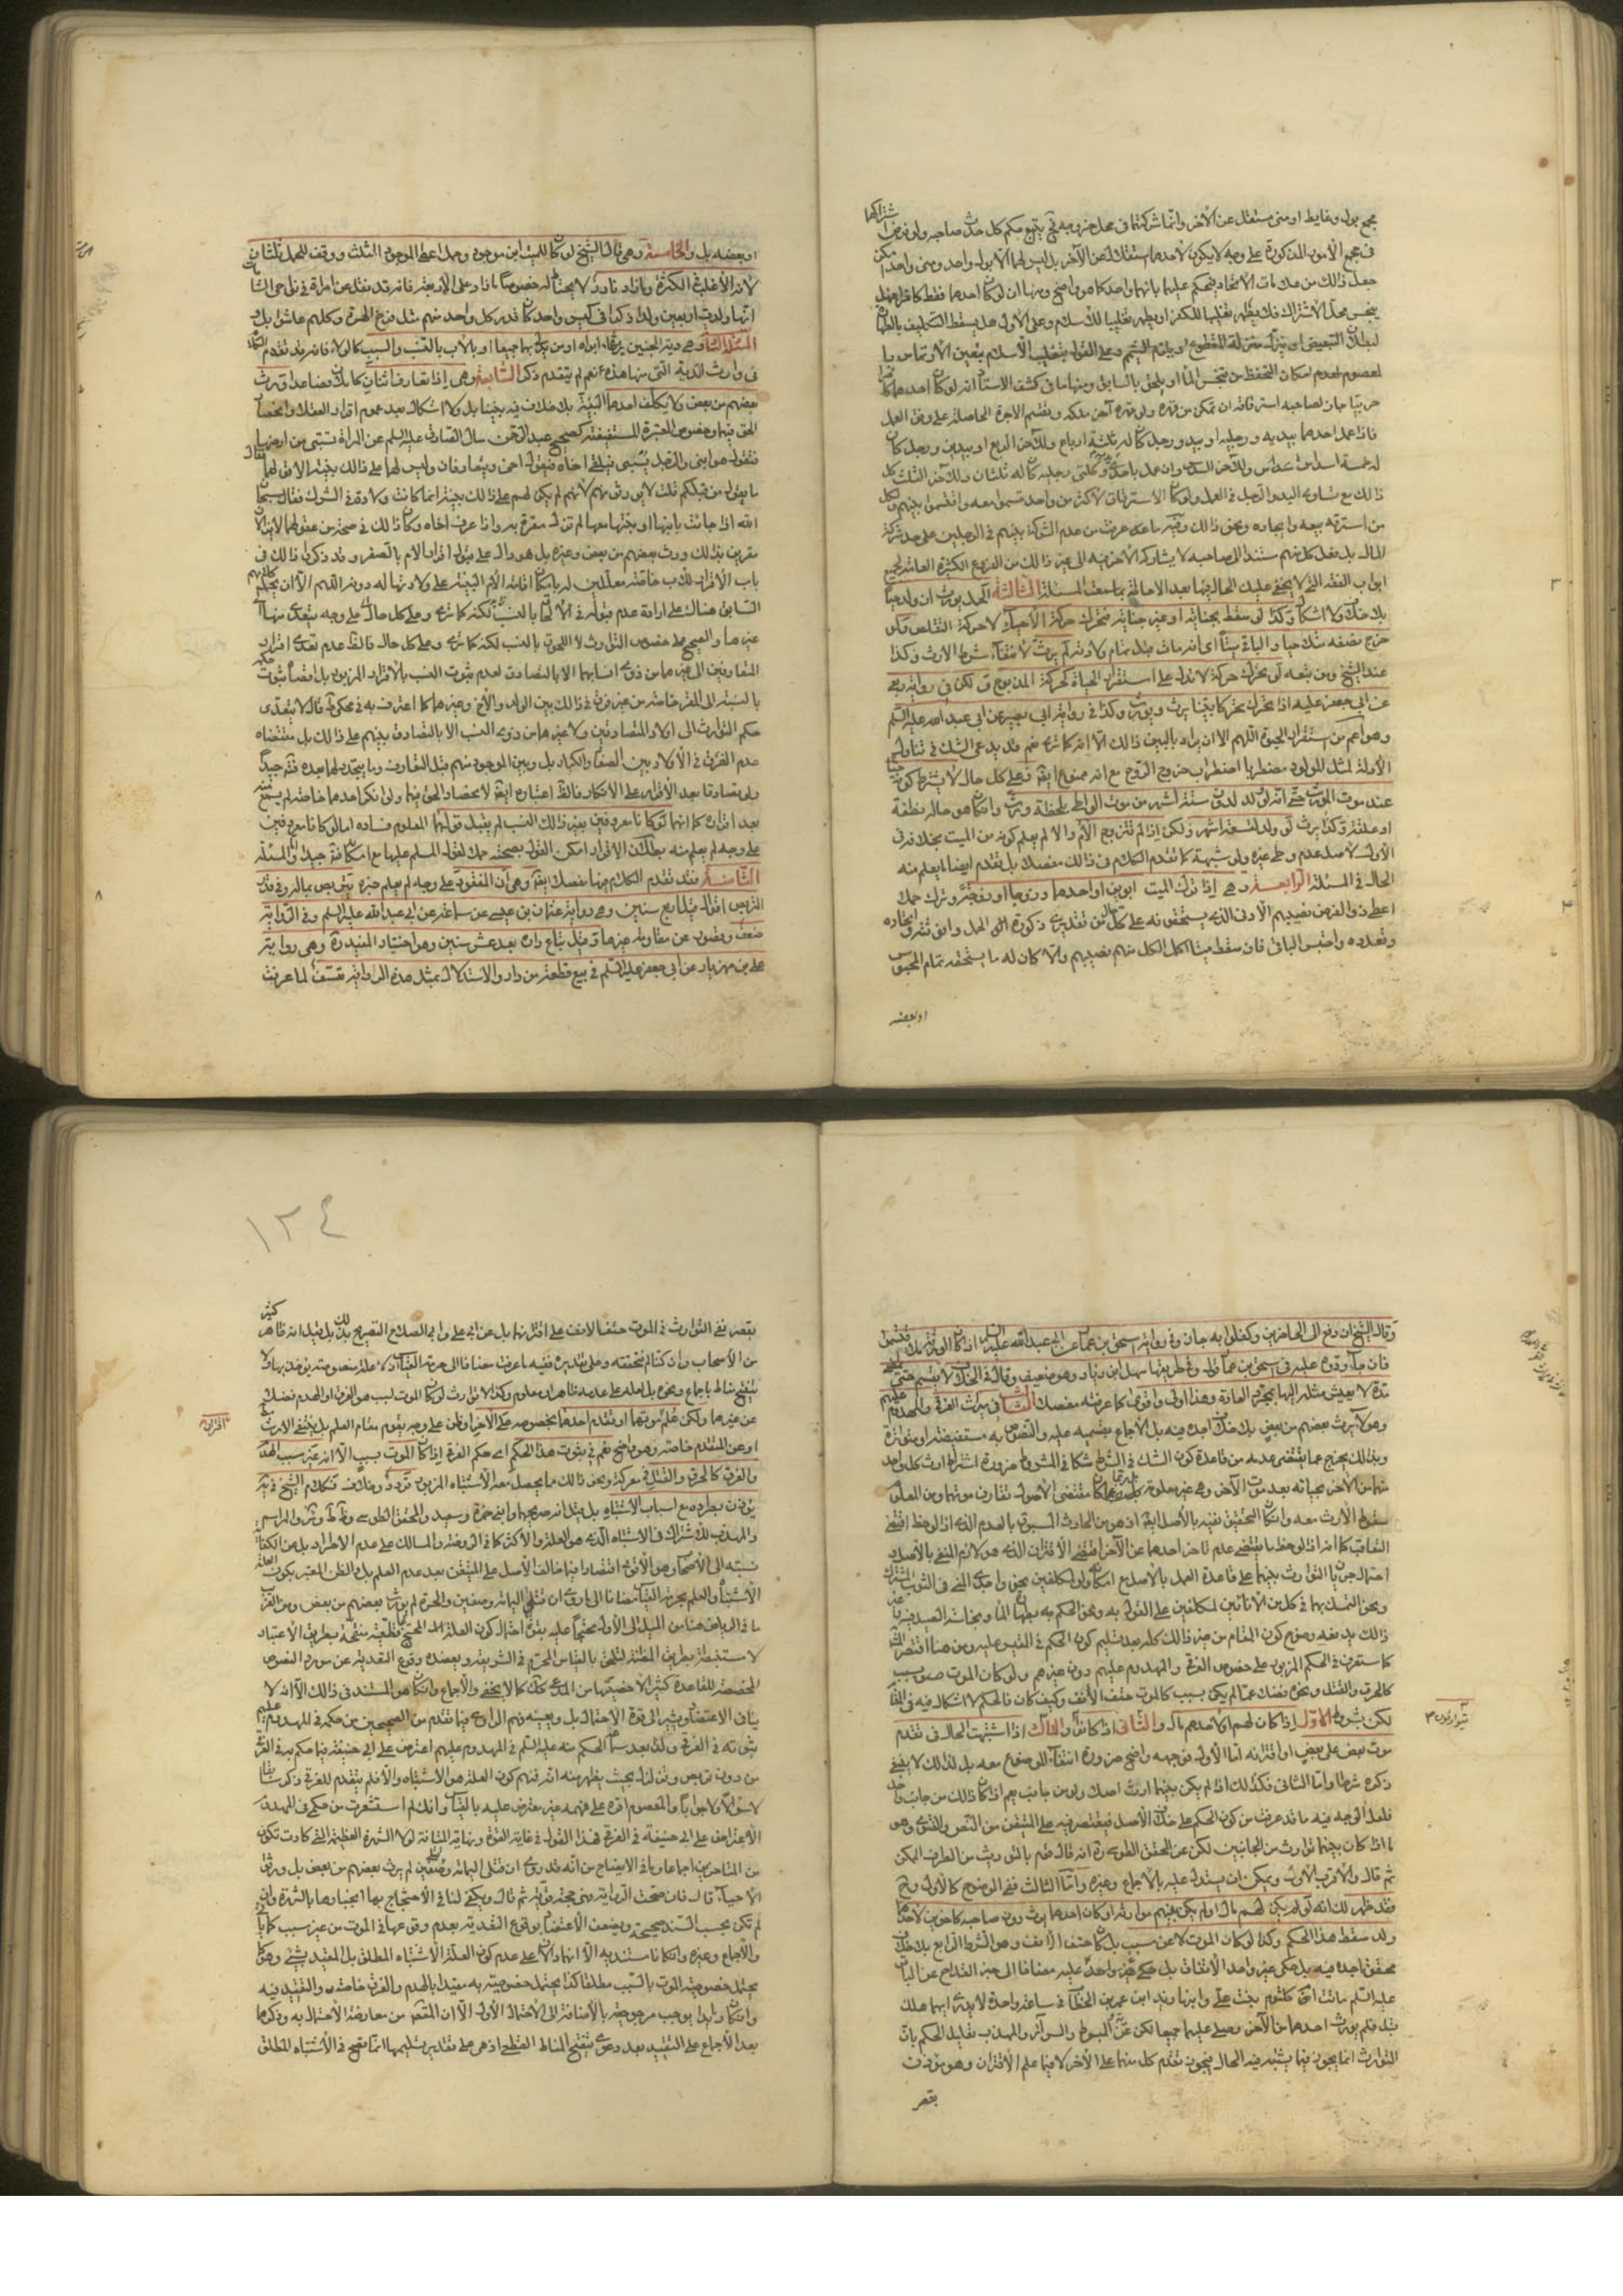 مجمع بول وغايط او منى مستقل عن الآخر وانما شركتهما فى محل خروجه فح يتبع حكم كل حدث صاحبه ولو فرض اشتراكهما
فى مجمع الامور المذكورة على وجه لا يكون لاحدهما استقلال عن الآخر بل ليس لهما الا بول واحد ومنى واحد امكن
جعل ذلك من علامات الاتحاد فيحكم عليهما بانهما واحد كما هو واضح ومنها ان لو كان احدهما فقط كافرا فهل
ينجس محل الاشتراك فلا يطهر تغليبا للكفر او يطهر تغليبا للاسلام وعلى الاول هل يسقط التكليف بالطهارة
لبطلان التبعيض او ينزل منزلة المقطوع او يلزم التيمم وعلى القول بتغليب الاسلام يتعين الاول
لعدم امكان التحفظ من تنجس الماء او يلحق بالسابق ومنها ما فى كشف الاستاد انه لو كان احدهما كافرا
حربيا جاز لصاحبه استرقاقه ان تمكن من قهره ولو قهره آخر ملكه وتقسم الاجرة الحاصلة على وفق العمل
فاذا عمل احدهما بيديه ورجليه او بيد ورجل كان له ثلثة ارباع وللآخر الربع او بيدين ورجل كان
له خمسة اسداس وللآخر السدس وان عمل باحدى وكلتى رجليه كان له ثلثان وللآخر الثلث كل
ذلك مع تساوى اليد والرجل فى العمل ولو كان الاسترقاق لاكثر من واحد قسموا معه واقتسموا بينهم ولكل
من استرقه بيعه وايجاره ونحو ذلك وفيه ما عرفت من عدم الشركة بينهم فى الرجلين على حد شركة
المال بل فعل كل منهم مستند الى صاحبه لا يشاركه الآخر فيه الى غير ذلك من الفروع الكثيرة العامة لجميع
ابواب الفقه التى لا يخفى عليك الحال فيها بعد الاحاطة بما سمعت المسئلة الثالثة الحمل يورث ان ولد حيا
بلا خلاف ولا اشكال وكذا لو سقط بجناية او غير جناية فتحرك حركة الاحياء لا حركة التقلص ولو
خرج نصفه مثلا حيا والباقى ميتا اى انه مات قبل تمام ولادته لم يرث لانتفاء شرط الارث وكذا
عند الشيخ ومن تبعه لو تحرك حركة لا تدل على استقرار الحياة كحركة المذبوح لكن فى رواية ربعى
عن ابى جعفر عليه اذا تحرك تحركا بينا يرث ويورث وكذا فى رواية ابى بصير عن ابى عبد الله عليه السلم
وهو اعم من استقرار الحيوة اللهم الا ان يراد بالبين ذلك الا انه كما ترى نعم قد يدعى الشك فى تناول
الادلة لمثل المولود مضطربا اضطراب خروج الروح مع انه ممنوع ايضا وعلى كل حال لا يشترط كونه حيا
عند موت المورث حتى انه لو ولد لدون ستة اشهر من موت الواطى بلحظة ورث وان كان هو حاله نطفة
او علقة وكذا يرث لو ولد لتسعة اشهر ولكن اذا لم تتزوج الام والا لم يعلم كونه من الميت بخلافه فى
الاول لاصل عدم وطى غيره ولو شبهة كما تقدم الكلام فى ذلك مفصلا بل تقدم ايضا ما يعلم منه
الحال فى المسئلة الرابعة وهى اذا ترك الميت ابوين او احدهما وزوجا او زوجة وترك حملا
اعطى ذو الفرض نصيبهم الادنى الذى يستحقونه على كل حال من تقديرى ذكورة الحمل وانوثته وايحاده
وتعدده واحتبس الباقى فان سقط ميتا اكمل لكل منهم نصيبهم والا كان له ما يستحقه تمام المحبوس
او بعضه
او بعضه بل والخامسة وهى قال الشيخ لو كان للميت ابن موجود وحمل اعطى الموجود الثلث ووقف للحمل ثلثان
لانه الاغلب فى الكثرة وما زاد نادر لا يحتاط له خصوصا ما زاد على الاربعة فانه قد نقل عن امرأة فى نواحى الشام
انها ولدت اربعين ولدا ذكرا فى كيس واحد كان قدر كل واحد منهم مثل فرخ الهرة وكلهم عاشوا بل
المسئلة السادسة وهى دية الجنين يرثها ابواه او من يتقرب بهما جميعا او بالاب بالنسب والسبب كالولاء فانه قد تقدم الكلام
فى وارث الدية التى منها هذه نعم لم يتقدم ذكر السابعة وهى اذا تعارف اثنان كاملان فصاعدا توارث
بعضهم من بعض ولا يكلف احدهما البينة بلا خلاف فيه بيننا بل ولا اشكال بعد عموم اقرار العقلاء وانحصار
الحق فيهما وخصوص المعتبرة المستفيضة كصحيح عبد الرحمن سأل الصادق عليه السلم عن المرأة تسبى من ارضها
فتقول هو ابنى والرجل يسبى فيلقى اخاه فيقول اخى ويتعارفان وليس لهما على ذلك بينة الا قولهما فقال
ما يقول من قبلكم قلت لا يورثونهم لانهم لم يكن لهم على ذلك بينة انما كانت ولادة فى الشرك فقال سبحان
الله اذا جائت بابنها او بنتها معها لم تزل مقرة به واذا عرف اخاه وكان ذلك فى صحة من عقولهما لا يزالان
مقرين بذلك ورث بعضهم من بعض وغيره بل هو دال على قبول اقرار الام بالصغر وقد ذكرنا ذلك فى
باب الاقرار
السابق هناك على ارادة عدم قبوله فى الالحاق بالنسب لكنه كما ترى وعلى كل حال
وغيرها والصحيح على خصوص التوارث لا اللحوق بالنسب لكنه كما ترى وعلى كل حال فالظ عدم تعدى اقرار
المتعارفين الى غيرهما من ذوى انسابهما الا بالتصادق لعدم ثبوت النسب بالاقرار المزبور بل اقصاه ثبوت حكمه
بالنسبة الى المقر خاصة من غير فرق فى ذلك بين الولد والاخ وغيرهما كما اعترف به فى محكى قال لا يتعدى
حكم التوارث الى اولاد المتصادقين ولا غيرهما من ذوى النسب الا بالتصادق بينهم على ذلك بل مقتضاه
عدم الفرق فى الاولاد بين الصغار والكبار بل وبين الموجود منهم قبل التعارف وما يتجدد لهما بعده فتدبر جيدا
ولو تصادقا بعد الاقرار على الانكار فالظ اعتباره ايضا لانحصار الحق فيهما ولو انكر احدهما خاصة لم يسمع
بعد اقراره كما انهما لو كانا معروفين بغير ذلك النسب لم يقبل قولهما المعلوم فساده اما لو كانا معروفين
على وجه لم يعلم منه بطلان الاقرار امكن القول بصحته حملا لقول المسلم عليها مع امكانه فتدبر جيدا والمسئلة
الثامنة فقد تقدم الكلام فيها مفصلا ايضا وهى ان المفقود على وجه لم يعلم خبره يتربص بماله وفى قدر
التربص اقوال قيل اربع سنين وهى رواية عثمان بن عيسى عن سماعة عن ابى عبد الله عليه السلم وفى الرواية
ضعف وقصور عن مقاومة غيرها وقيل يباع داره بعد عشر سنين وهو اختيار المفيد ره وهى رواية
على بن مهزيار عن ابى جعفر عليه السلم فى بيع قطعة من دار والاستدلال بمثل هذه الرواية تعسف لما عرفت
وقال الشيخ ان دفع الى الحاضرين وكفلوا به جاز وفى رواية اسحق بن عمار عن ابى عبد الله عليه السلم اذا كان الورثة ملاء اقتسموا
فان جاء ردوه عليه وفى اسحق بن عمار قول وفى طريقها سهل بن زياد وهو ضعيف وقال فى الخلاف لا يقسم حتى يمضى
مدة لا يعيش مثله اليها بمجرى العادة وهذا اولى واقوى كما عرفته مفصلا الثانى فى ميراث الغرقى والمهدوم عليهم
وهؤلاء يرث بعضهم من بعض بلا خلاف اجده فيه بل الاجماع بقسميه عليه والنصوص به مستفيضة او متواترة
وبذلك يخرج عما يقتضى عدمه من قاعدة كون الشك فى الشرط شكا فى المشروط ضرورة اشتراط ارث كل واحد
منهما من الآخر بحياته بعد موت الآخر وهى غير معلومة بل ربما كان مقتضى الاصول تقارن موتهما ومن المعلوم
سقوط الارث معه وان كان التحقيق نفيه بالاصل ايضا اذ هو من الحادث المسبوق بالعدم الذى اذا لوحظ اقتضى
التعاقب كما انه اذا لوحظ ما يقتضى عدم تأخر احدهما عن الآخر اقتضى الاقتران الذى هو لازم المنفى بالاصل و
احتمال جريان التوارث بينهما على قاعدة العمل بالاصل مع امكانه ولو لمكلفين نحو واجدى المنى فى الثوب المشترك
ونحو التمسك بهما فى كل من الانائين لمكلفين على القول به ونحو الحكم به بطهارة الماء ونجاسة الصيد فيه وغير
ذلك يدفعه وضوح كون المقام من غير ذلك كله بعد تسليم كون الحكم فى المقيس عليه ومن هنا اقتصر
كما ستعرف فى الحكم المزبور على خصوص الغرقى والمهدوم عليهم دون غيرهم ولو كان الموت صوب بسبب
كالحرق والقتل ونحوه فضلا عما لم يكن بسبب كالموت حتف الانف وكيف كان فالحكم لا اشكال فيه فى الغرقى
لكن بشروط الاول اذا كان لهم او لاحدهم مال والثانى اذا كانوا والثالث اذا اشتبهت الحال فى تقدم
موت بعض على بعض او اقترانه اما الاول فوجهه واضح ضرورة انتفاء الموضوع معه بل لذلك لا ينبغى
ذكره شرطا واما الثانى فكذلك اذا لم يكن بينهما ارث اصلا ولو من جانب نعم اذا كان ذلك من جانب واحد
فلعل الوجه فيه ما قد عرفت من كون الحكم على خلاف الاصل فيقتصر فيه على المتيقن من النص والفتوى وهو
ما اذا كان بينهما توارث من الجانبين لكن عن المحقق الطوسى ره انه قال قوم بالتوريث من الطرف الممكن
ثم قال والاقرب الاول ويمكن ان يستدل عليه بالاجماع وغيره واما الثالث ففى الوضوح كالاول وح
فقد ظهر لك انه لو لم يكن لهم مال او لم يكن بينهم موارثة او كان احدهما يرث دون صاحبه كاخوين لاحدهما
ولد سقط هذا الحكم وكذا لو كان الموت لا عن سبب بل كان حتف الانف وهو الشرط الرابع بلا خلاف
محقق اجده فيه بل حكى غير واحد الاتفاق بل حكى غير واحد عليه مضافا الى خبر القداح عن الباقر
عليه السلم ماتت ام كلثوم بنت على وابنها زيد ابن عمر بن الخطاب فى ساعة واحدة لا يدرى ايهما هلك
قبل فلم يورث احدهما من الآخر وصلى عليهما جميعا لكن عن المبسوط والسرائر والمهذب تعليل الحكم بان
التوارث انما يجوز فيما يشتبه فيه الحال فيجوز تقدم كل منهما على الآخر لا فيما علم الاقتران وهو يؤذن
بقصر
تيوارثون ٣
١٢٤
بقصر نفى التوارث فى الموت حتف الانف على اقترانهما بل عن ابى على وابى الصلاح التصريح بذلك بل قيل انه ظاهر كثير
من الاصحاب
ينقح مناط باجماع ونحوه بل لعله على عدمه ظاهر او معلوم وكذا لا توارث لو كان الموت لسبب هو الغرق او الهدم فضلا
عن غيرهما ولكن علم موتهما او تقدم احدهما بخصوصه على الآخر او ظن على وجه يقوم مقام العلم بل ينتفى الارث
او عن المتقدم خاصة وهو واضح نعم فى ثبوت هذا الحكم اى حكم الغرقى اذا كان الموت بسبب الا انه غير سبب الهدم
والغرق كالحرق والقتل فى معركة ونحو ذلك مما يحصل معه الاشتباه المزبور تردد وخلاف فكلام الشيخ فى يه
يؤذن بطرده مع اسباب الاشتباه بل قيل انه صريحها وابنى حمزة وسعيد والمحقق الطوسى
والمهذب للاشتراك فى الاشتباه الذى هو العلة والاكثر كما فى الروضة والمسالك على عدم الاطراد بل عن الكفاية
نسبته الى الاصحاب وهو الاقوى اقتصارا فيما خالف الاصل على المتيقن بعد عدم العلم بل والظن المعتبر بكون العلة
الاشتباه والعلم بحرمة القياس مضافا الى ما روى ان قتلى اليمامة وصفين والحرة لم يورث بعضهم من بعض ومن الغريب
ما فى الرياض هنا من الميل الى الاول محتجا عليه بقوة احتمال كون العلة المحتج بها قطعية منقحة بطريق الاعتبار
لا مستنبطة بطريق المظنة لتلحق بالقياس المحرم فى الشريعة ويعضده وقوع التعدية عن مورد النصوص
المخصصة للقاعدة كثير الاخصيتها من المدعى كما لا يخفى والاجماع وان كان هو المستند فى ذلك الا انه لا
ينافى الاعتضاد ويشير الى قوة الاحتمال بل وتعينه فهم الراوى فيما تقدم من الصحيحين من حكمه فى المهدوم عليهم
ثبوته فى الغرقى ولذا بعد سماع الحكم منه عليه السلم فى المهدوم عليهم اعترض على ابى حنيفة فيما حكم به فى الغرقى
من دون تربص وتزلزل بحيث يظهر منه انه فهم كون العلة هو الاشتباه والا فلم يتقدم للغرقى ذكر سابقا
لا سؤالا ولا جوابا والمعصوم اقره على فهمه غير معترض عليه بالقياس وانك لم استشعرت من حكمى فى المهدوم
الاعتراض على ابى حنيفة فى الغرقى فهذا القول فى غاية القوة ونهاية المتانة لولا الشهرة العظيمة التى كادت تكون
من المتاخرين اجماعا وما فى الايضاح من انه قد روى ان قتلى اليمامة وصفين لم يرث بعضهم من بعض بل ورثوا
الاحياء قال فان صحت الرواية فهى حجة قوية ثم قال ويكفى لنا فى الاحتجاج بها انجبارها بالشهرة وان
لم تكن بحسب السند صحيحة ويضعف الاعتضاد بوقوع التعدية بعدم وقوعها فى الموت من غير سبب كما يأتى
والاجماع وغيره وان كانا مستندا به الا انهما دالان على عدم كون العلة الاشتباه المطلق بل المقيد بشئ وهو كما
يحتمل خصوصية الموت بالسبب مطلقا كذا يحتمل خصوصيته به مقيدا بالهدم والغرق خاصة والتقييد فيه
وان كان زايدا يوجب مرجوحيته بالاضافة الى الاحتمال الاول الا ان المقصود من معارضة الاحتمال به وذكرها
بعد الاجماع على التقييد بعد دعوى تنقيح المناط القطعى اذ هى على تقدير تسليمها انما تصح فى الاشتباه المطلق